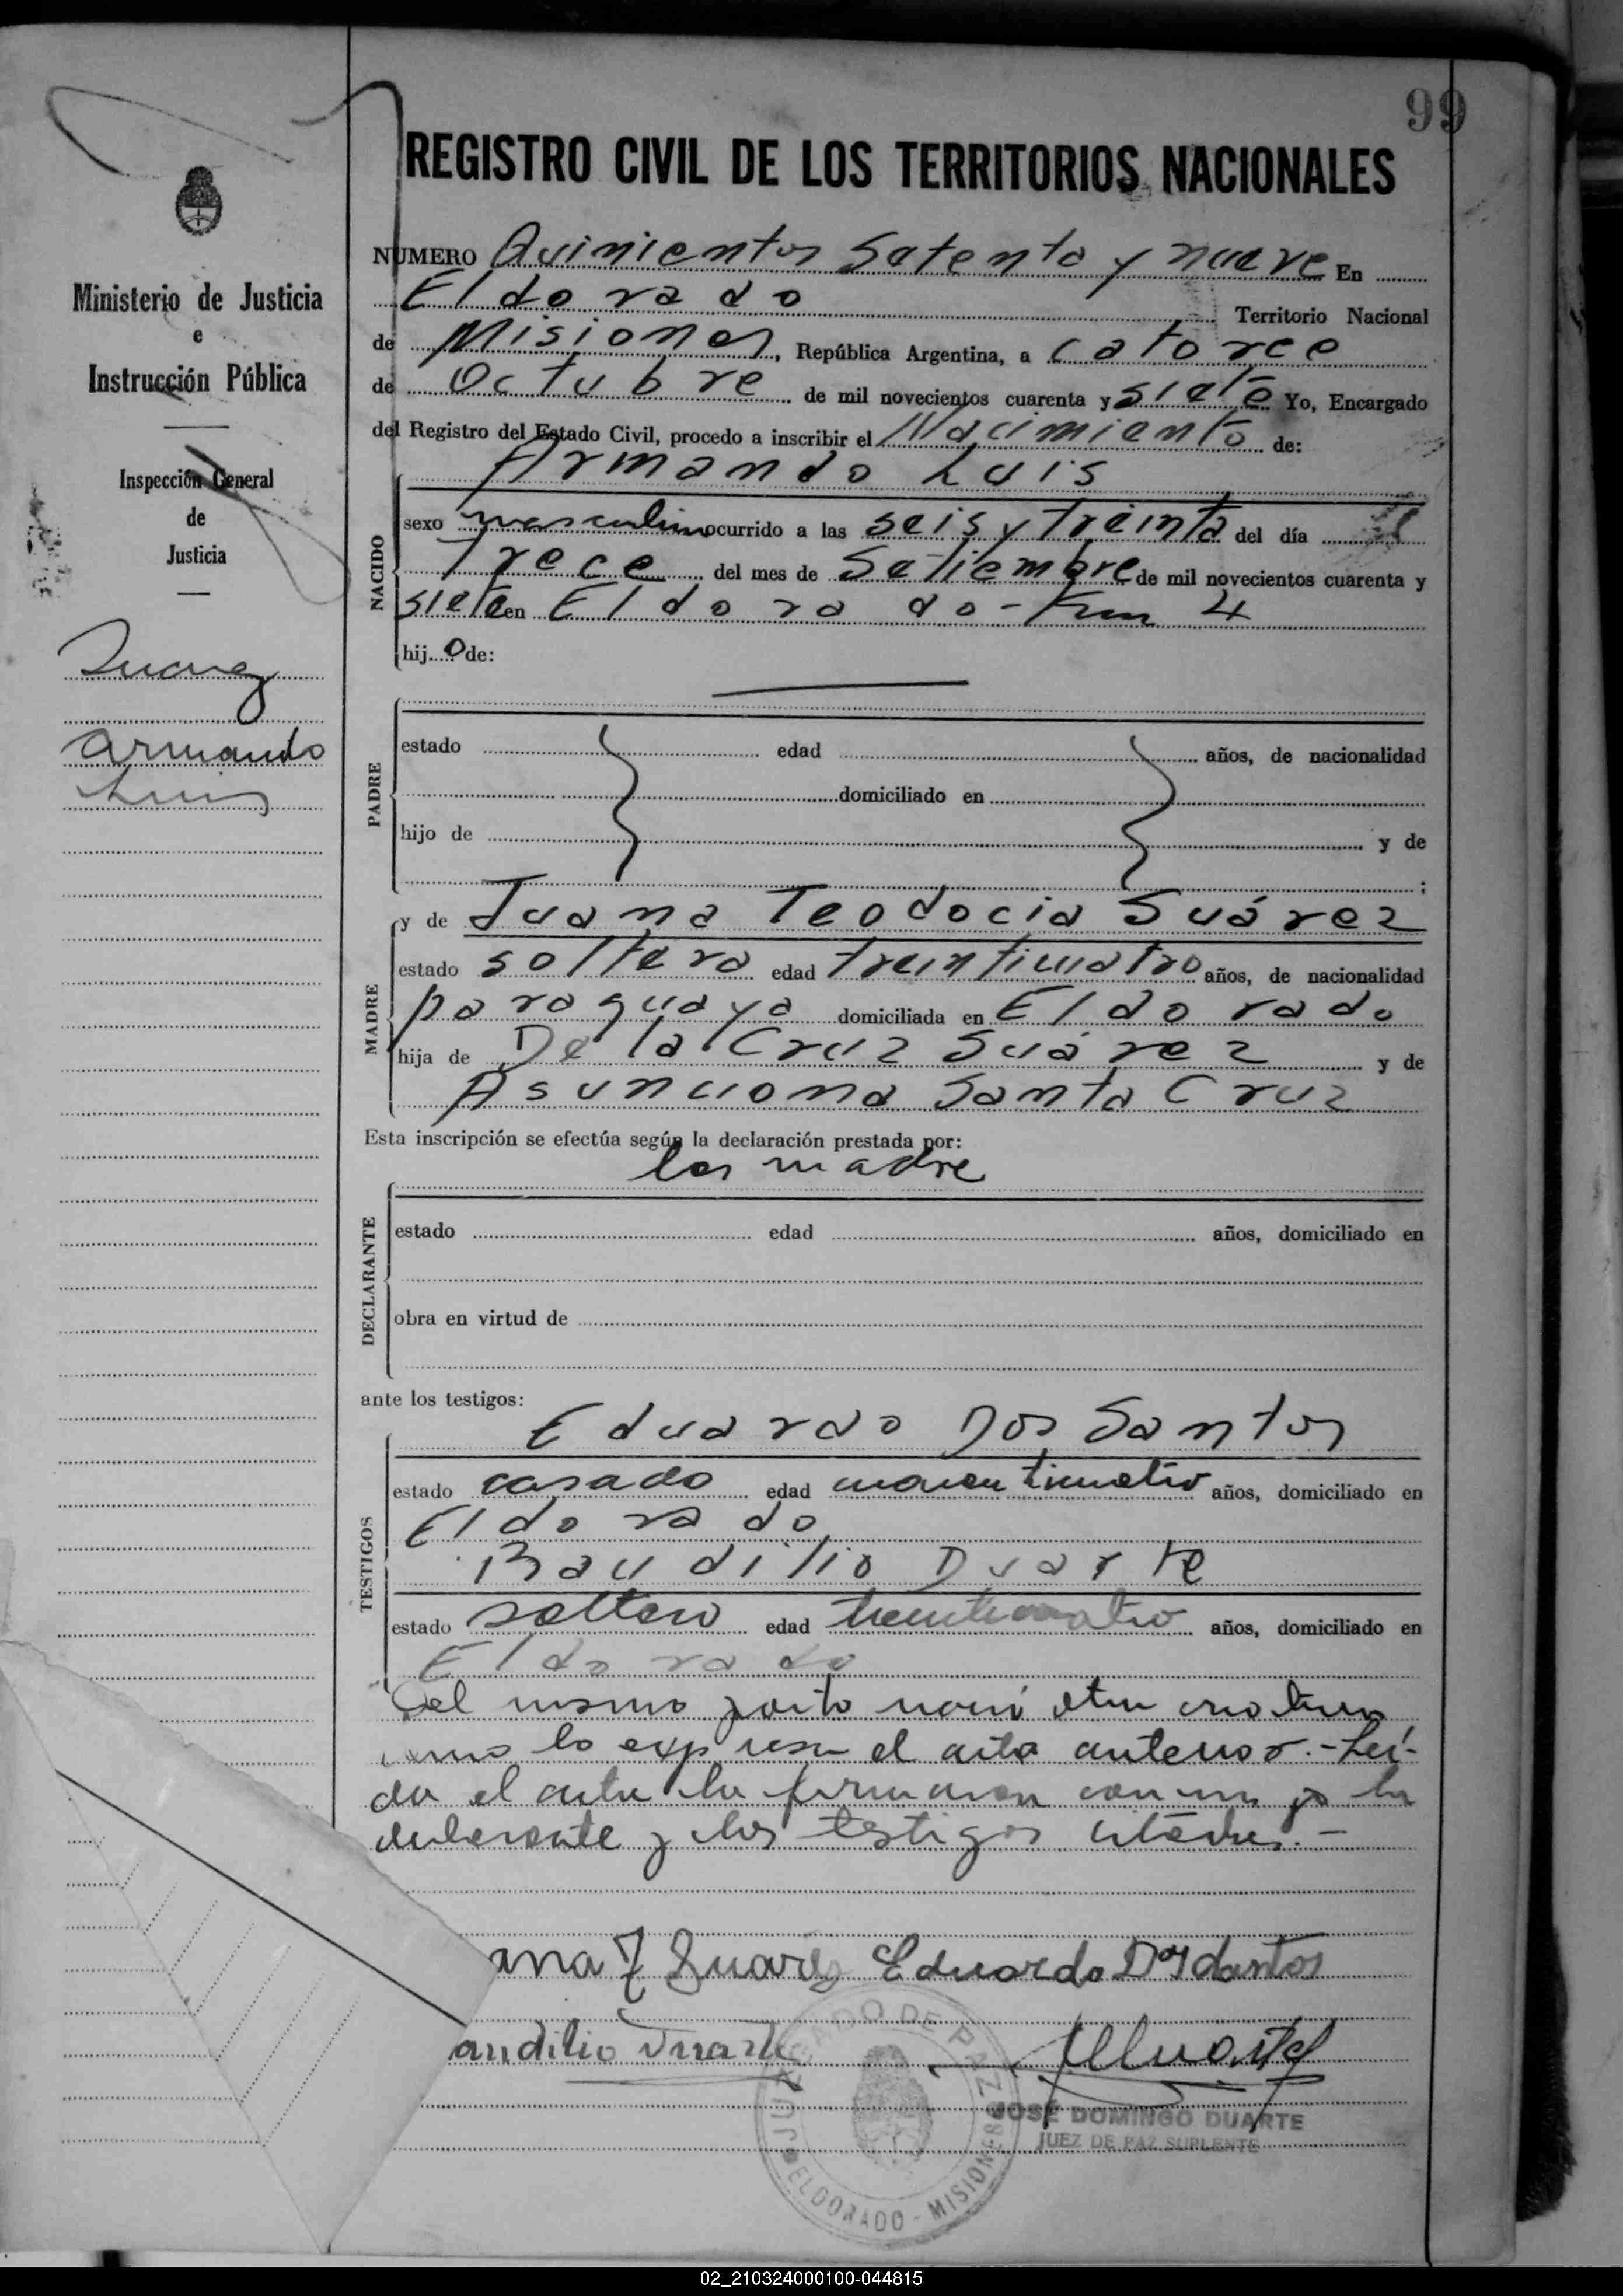 99
REGISTRO CIVIL DE LOS TERRITORIOS NACIONALES
Ministerio de Justicia
e
Instrucción Pública
Inspección General
de
Justicia
Suarez
Armando
Luis
NUMERO Quinientos Setenta y nueve En
Eldorado Territorio Nacional
de Misiones, República Argentina, a catorce
de Octubre de mil novecientos cuarenta y siete Yo, Encargado
del Registro del Estado Civil, procedo a inscribir el Nacimiento de:
Armando Luis
NACIDO
sexo masculino ocurrido a las seis y treinta del día
Trece del mes de Setiembre de mil novecientos cuarenta y
siete en Eldorado - Km 4
hij o de:
PADRE
estado edad años, de nacionalidad
domiciliado en
hijo de y de
;
MADRE
y de Juana Teodocia Suárez
estado soltera edad treinticuatro años, de nacionalidad
paraguaya domiciliada en Eldorado
hija de De la Cruz Suárez y de
Asunciona Santa Cruz
Esta inscripción se efectúa según la declaración prestada por:
la madre
DECLARANTE
estado edad años, domiciliado en
obra en virtud de
ante los testigos:
TESTIGOS
Eduardo Dos Santos
estado casado edad cuarenticuatro años, domiciliado en
Eldorado
Baudilio Duarte
estado soltero edad treinticuatro años, domiciliado en
Eldorado
Del mismo parto nació otra criatura
como lo expresa el acta anterior.- Leí-
da el acta la firmaron conmigo la
declarante y los testigos citados.-
ana T Suarez Eduardo Dos Santos
audilio Duarte
JUZGADO DE PAZ
ELDORADO - MISIONES
JOSÉ DOMINGO DUARTE
JUEZ DE PAZ SUPLENTE
02_210324000100-044815